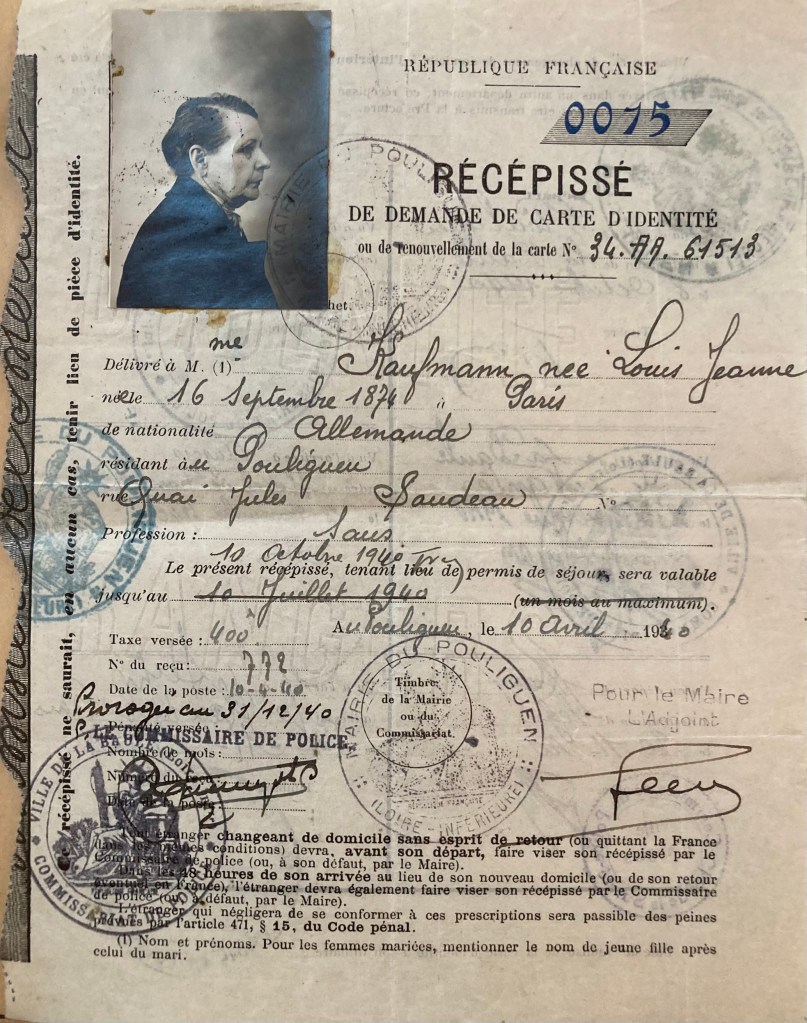 RÉPUBLIQUE FRANÇAISE
0075
RÉCÉPISSÉ
DE DEMANDE DE CARTE D'IDENTITÉ
ou de renouvellement de la carte N° 34.AA.61513
MAIRIE DU POULIGUEN
Délivré à M. (1) me Kaufmann nee Louis Jeanne
née le 16 Septembre 1874 à Paris
de nationalité Allemande
résidant à au Pouliguen
rue Quai Jules Sandeau N°
Profession : Sans
10 Octobre 1940
Le présent récépissé, tenant lieu de permis de séjour, sera valable
jusqu'au 10 Juillet 1940 (un mois au maximum).
A u Pouliguen, le 10 avril 1940
Taxe versée : 400
N° du reçu : 772
Date de la poste : 10-4-40
Prorogé au 31/12/40
Pour le Maire
L'Adjoint
Timbre
de la Mairie
ou du
Commissariat.
MAIRIE DU POULIGUEN
(LOIRE-INFÉRIEURE)
LE COMMISSAIRE DE POLICE
Nombre de mois :
Numéro du reçu
Date de la poste
VILLE DE LA BAULE
Tout étranger changeant de domicile sans esprit de retour (ou quittant la France
dans les mêmes conditions) devra, avant son départ, faire viser son récépissé par le
Commissaire de police (ou, à son défaut, par le Maire).
Dans les 48 heures de son arrivée au lieu de son nouveau domicile (ou de son retour
éventuel en France), l'étranger devra également faire viser son récépissé par le Commissaire
de police (ou, à défaut, par le Maire).
L'étranger qui négligera de se conformer à ces prescriptions sera passible des peines
prévues par l'article 471, § 15, du Code pénal.
(1) Nom et prénoms. Pour les femmes mariées, mentionner le nom de jeune fille après
celui du mari.
Ce récépissé ne saurait, en aucun cas, tenir lieu de pièce d'identité.